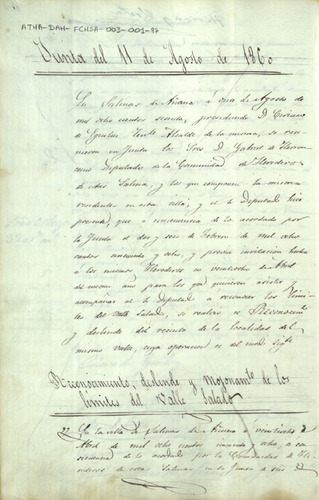 ATHA-DAH-FCHSA-003-001-97
Junta del 11 de Agosto de 1860
En Salinas de Añana á once de Agosto de
mil ocho cientos sesenta, presidiendo D. Ciriaco
de Eguiluz Alcalde de la misma, se reu
nieron en Junta los Sres D. Gabriel de Herran
como Diputado de la Comunidad de Herederos
de estas Salinas, y los que componen la misma
residentes en esta villa; y el Diputado hizo
presente, que á consecuencia de lo acordado por
la Junta el dos y seis de Febrero de mil ocho
cientos cincuenta y ocho, y previa invitacion hecha
á los mismos Herederos en veintiocho de Abril
del mismo año para los que quisieren asistir y
acompañar al Diputado á reconocer los limi
tes del valle Salado, se realizo el Reconocimto
y deslinde del recinto de la localidad del
mismo valle, cuya operacion es del modo sigte
Reconocimiento, deslinde y Mojonamto de los
limites del Valle Salado
En la villa de Salinas de Añana á veintiocho de
Abril de mil ocho cientos cincuenta y ocho, á con
secuencia de lo acordado por la Comunidad de He
rederos de estas Salinas, en su Junta de